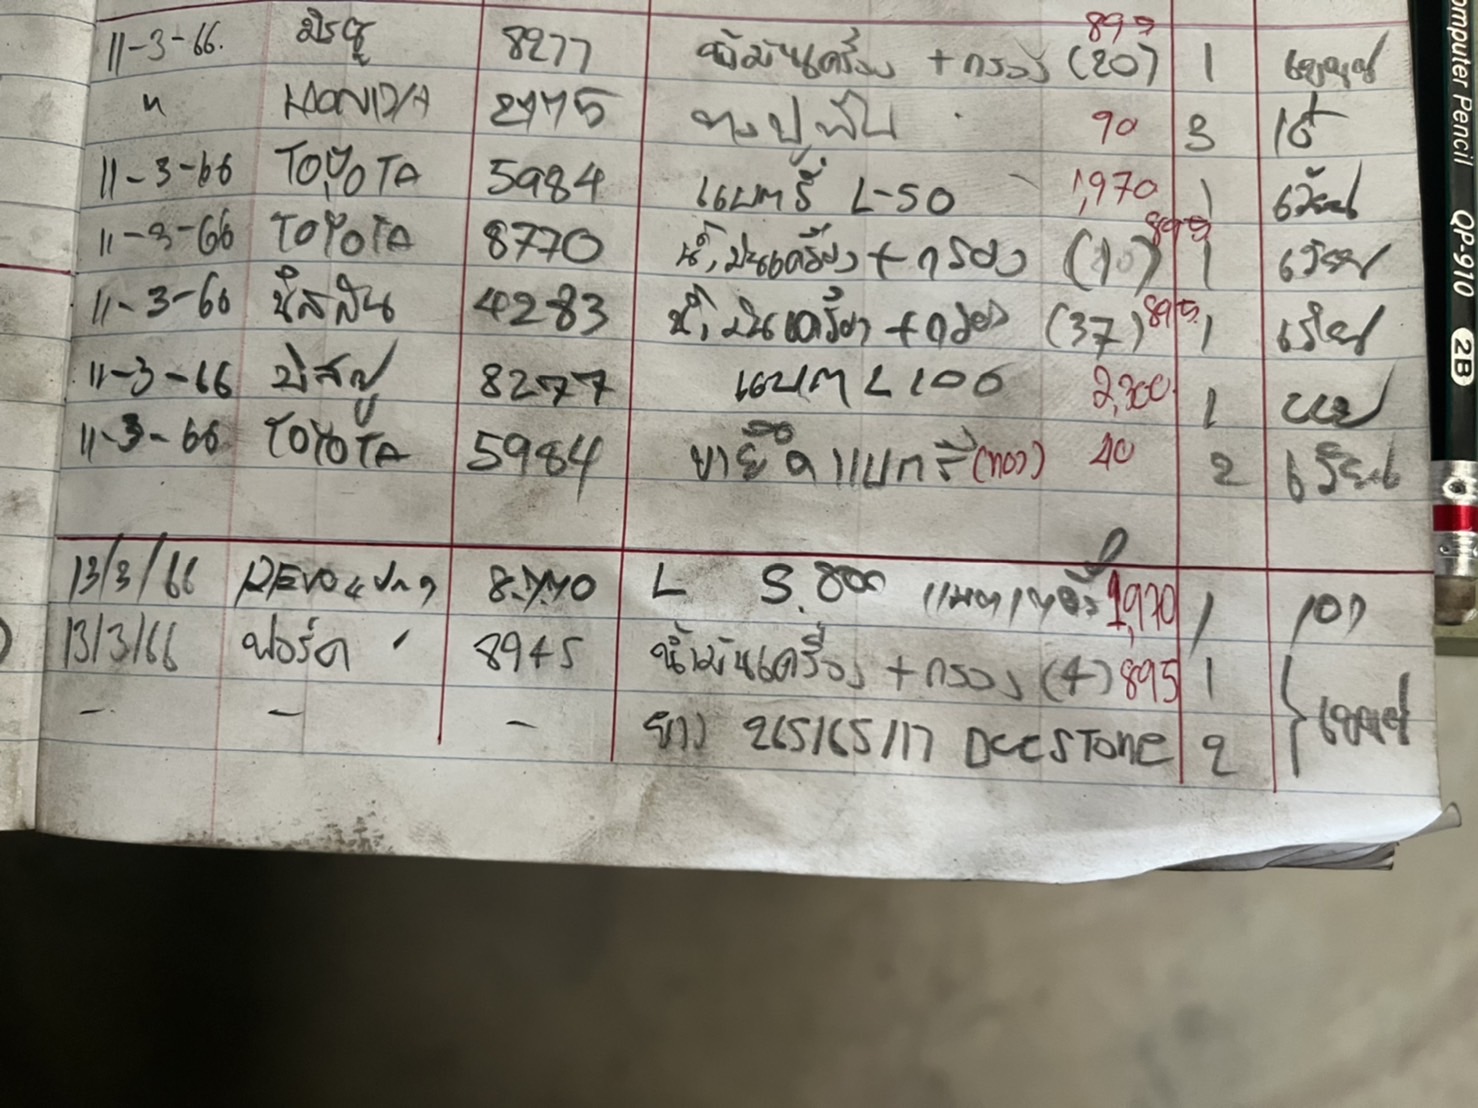 895
11-3-66. อีซูซุ 8277 น้ำมันเครื่อง + กรอง (20) 1
" HONDA 2475 90 3 เต้
11-3-66 TOYOTA 5984 แบตรี่ L-50 1,970 1
11-3-66 TOYOTA 8770 น้ำมันเครื่อง + กรอง (10) 895 1
11-3-66 นิสสัน 4283 น้ำมันเครื่อง + กรอง (37) 895 1
11-3-66 8277 แบต L 100 2,300 1
11-3-66 TOYOTA 5984 ขายึดแบทรี่ (ทอง) 40 2
13/3/66 REVO 8770 L S.800 1,970 1
13/3/66 ฟอร์ด 8945 น้ำมันเครื่อง + กรอง (4) 895 1
- - - ยาง 265/65/17 DEESTONE 2
omputer Pencil QP-910 2B